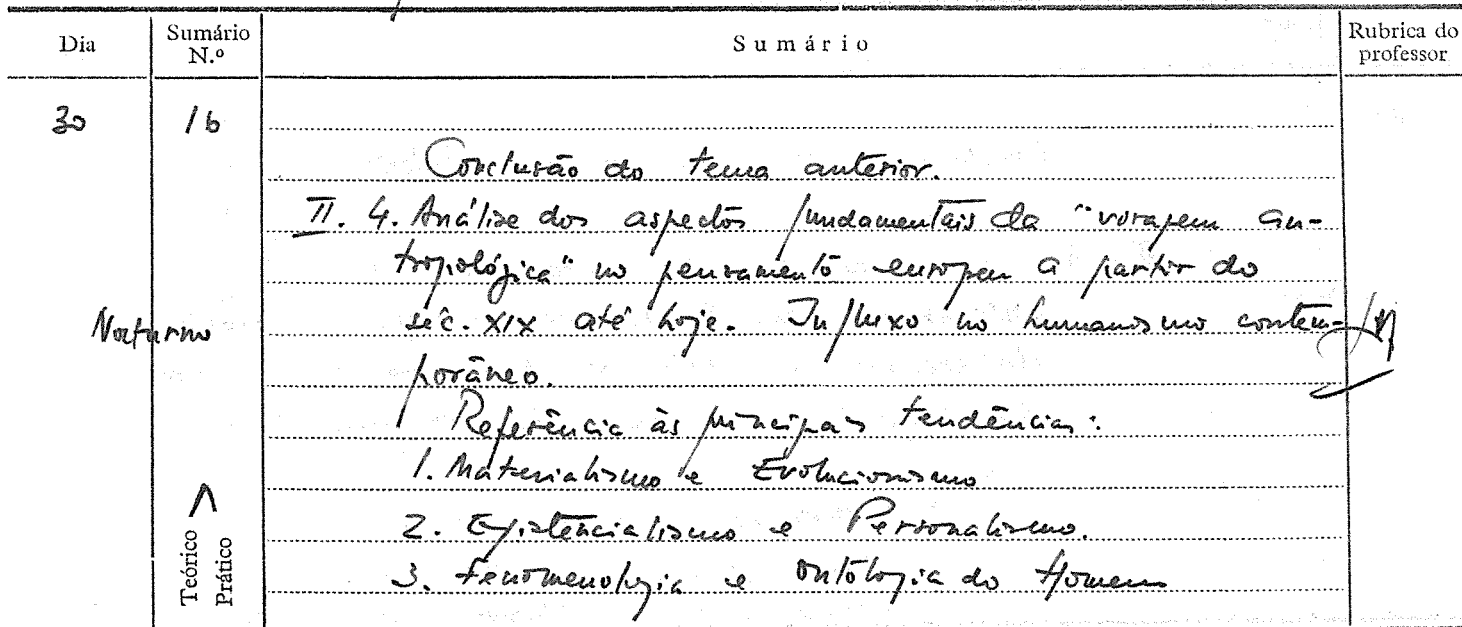 Dia
Sumário N.º
Sumário
Rubrica do professor
30
16
Conclusão do tema anterior.
II. 4. Análise dos aspectos fundamentais da "voragem an-
tropológica" no pensamento europeu a partir do
Nocturno
séc. XIX até hoje. Influxo no humanismo contem-
porâneo.
Referência às principais tendências:
1. Materialismo e Evolucionismo
2. Existencialismo e Personalismo.
3. Fenomenologia e Ontologia do Homem
Teórico
Prático